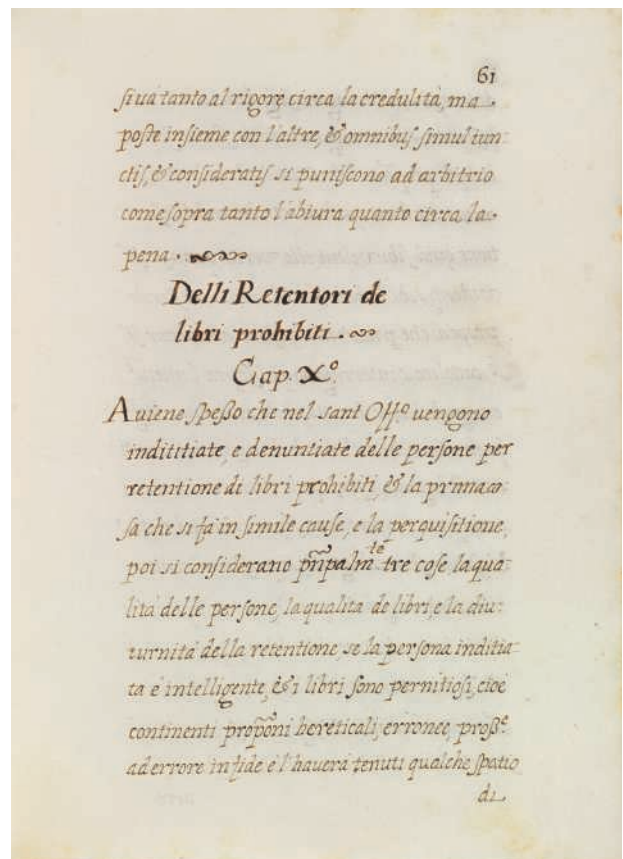 61
siua tanto al rigore circa la credulità, ma
poste insieme con l'altre, & omnibus simul iun:
ctis, & consideratis si puniscono ad arbitrio
come sopra tanto l'abiura quanto circa la
pena.
Delli Retentori de
libri prohibiti.
Cap. Xº.
Auiene spesso che nel sant Offº. uengono
indititiate, e denuntiate delle persone per
retentione di libri prohibiti, & la prima co:
sa che si fà in simile cause, e la perquisitione,
poi si considerano prīpalmte tre cose la qua:
lità delle persone, la qualita de libri, e la diu:
turnità della retentione, se la persona inditia:
ta è intelligente, & i libri sono pernitiosi, cioè
continenti propōni hereticali, erronee,
ad errore in fide e l'hauerà tenuti qualche spatio
di